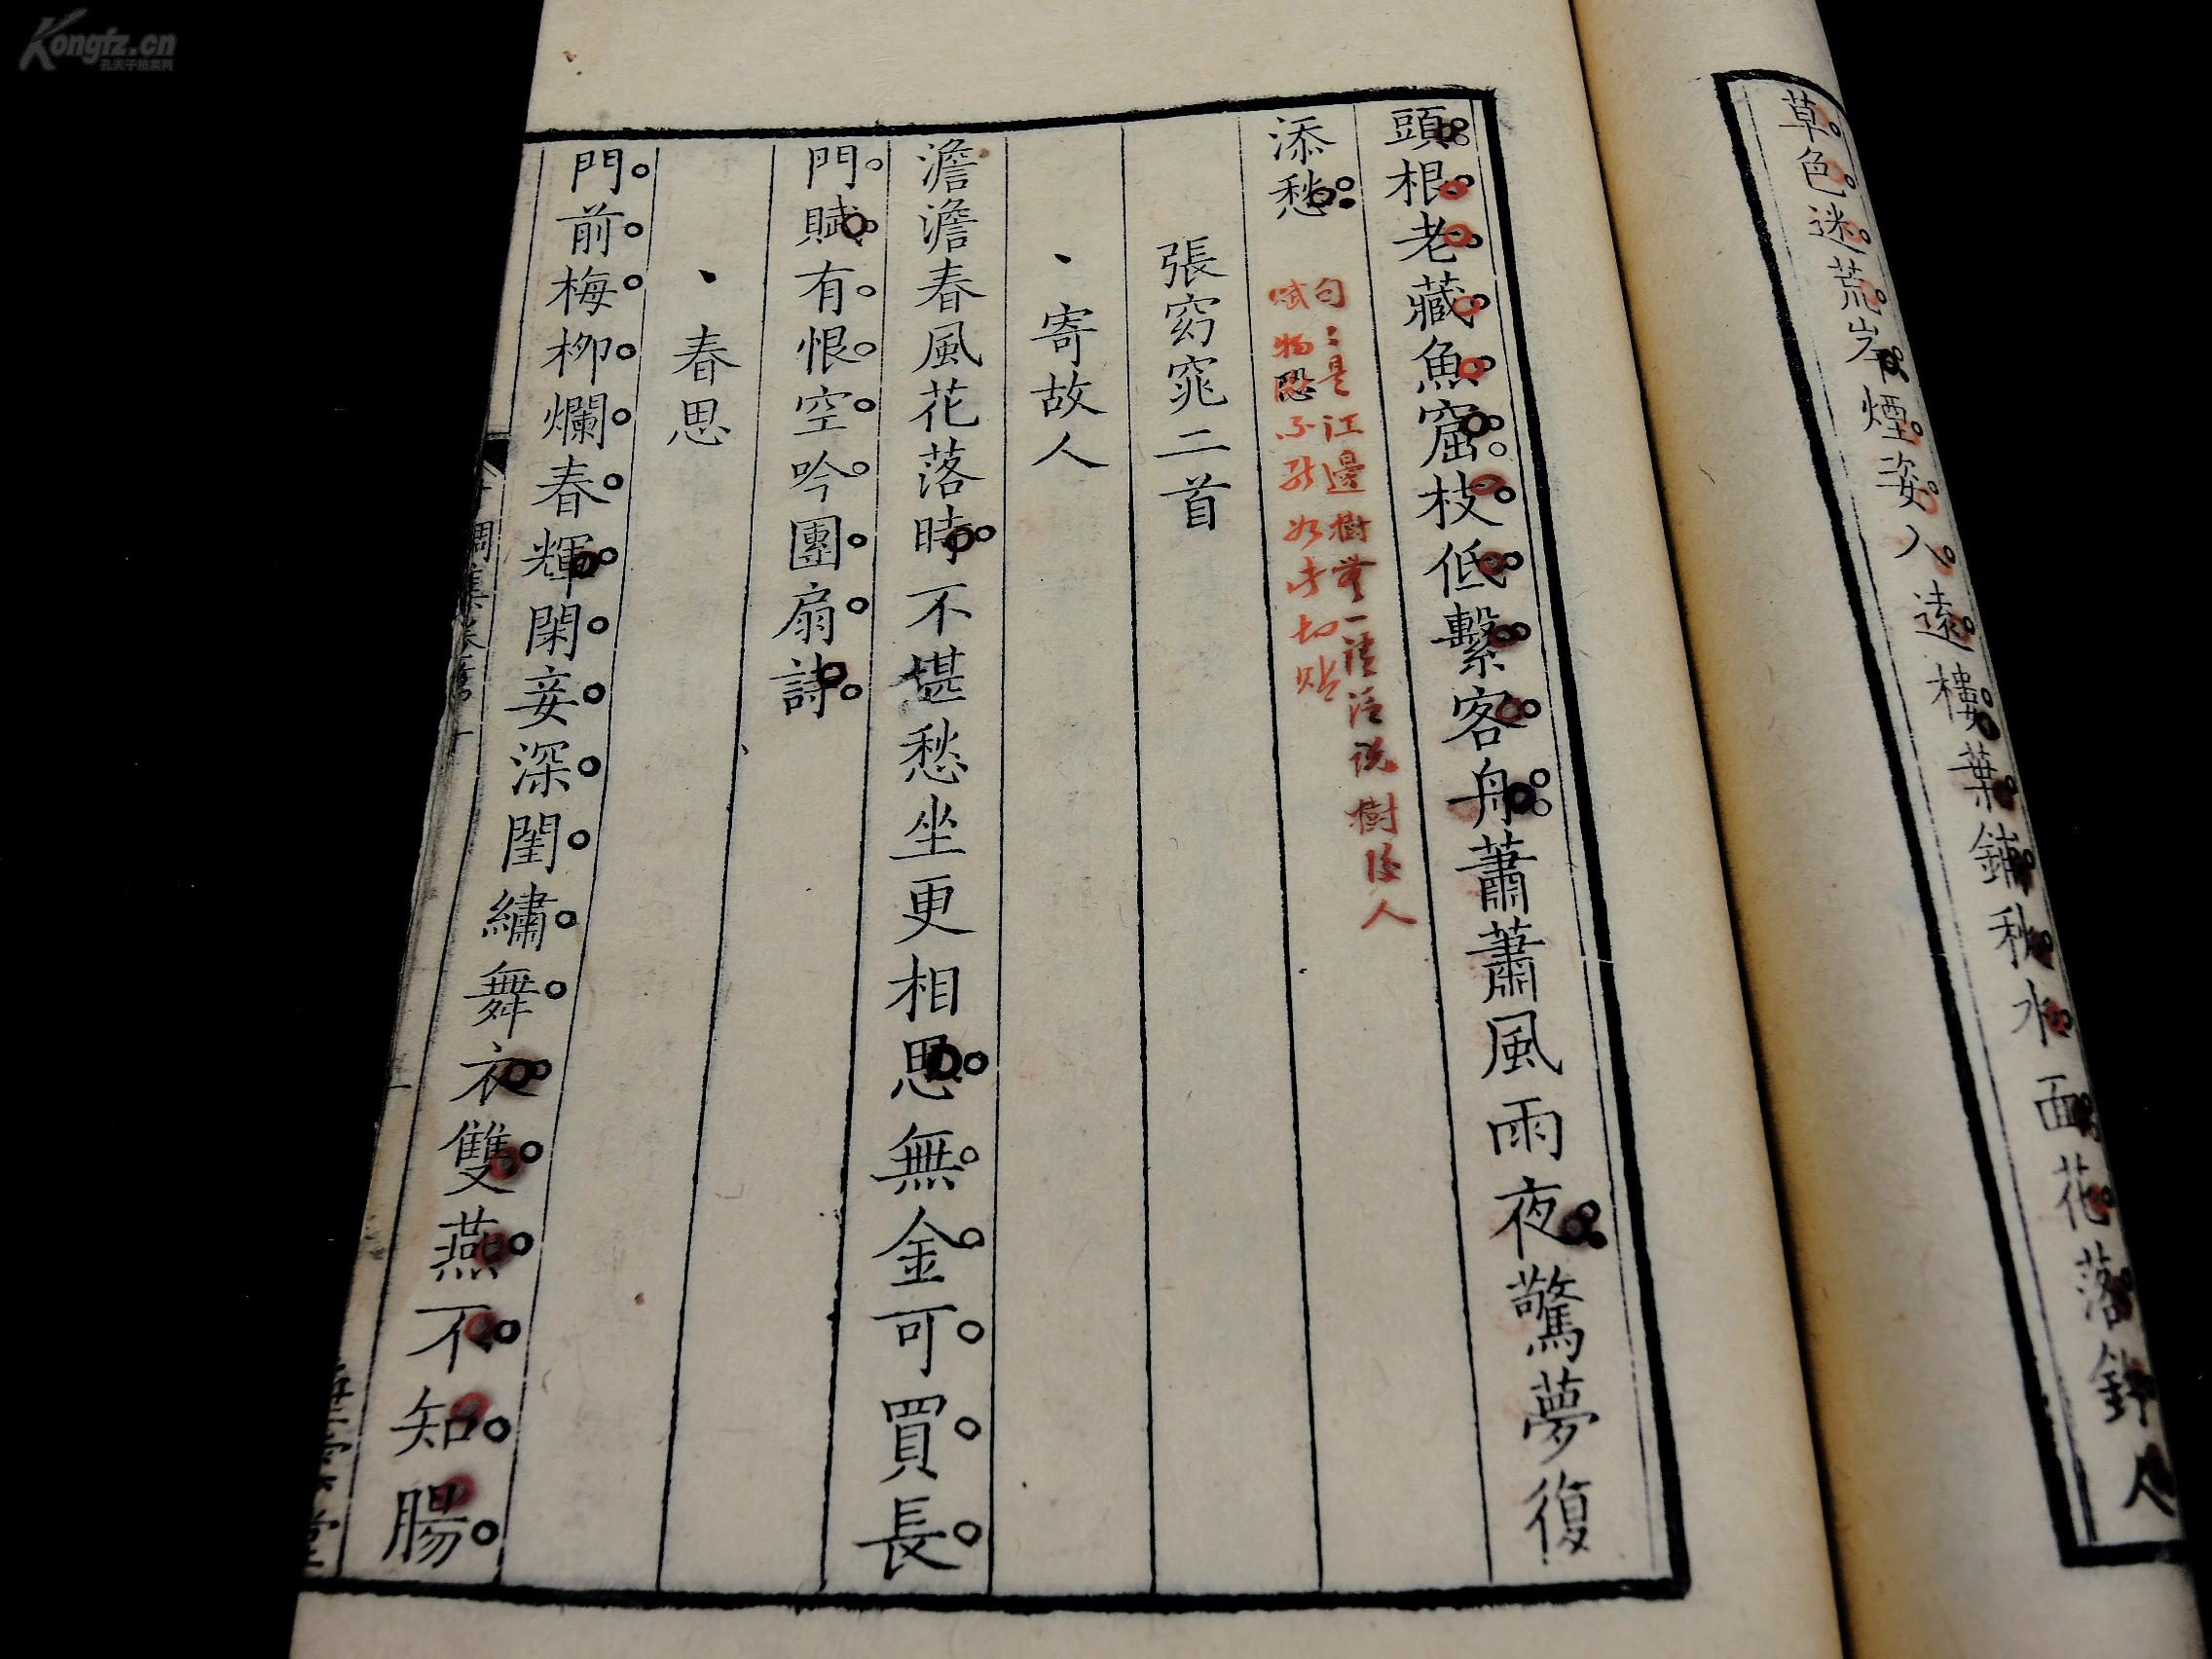 Kongfz.cn
孔夫子拍卖网
草色迷荒岸煙姿入遠樓葉鋪秋水面花落釣人
頭根老藏魚窟枝低繫客舟蕭蕭風雨夜驚夢復
添愁
句〻是江邊樹
說樹
人
賦物恐不能如此切貼
張窈窕二首
寄故人
澹澹春風花落時不堪愁坐更相思無金可買長
門賦有恨空吟團扇詩
春思
門前梅柳爛春輝閑妾深閨繡舞衣雙燕不知腸
調集卷